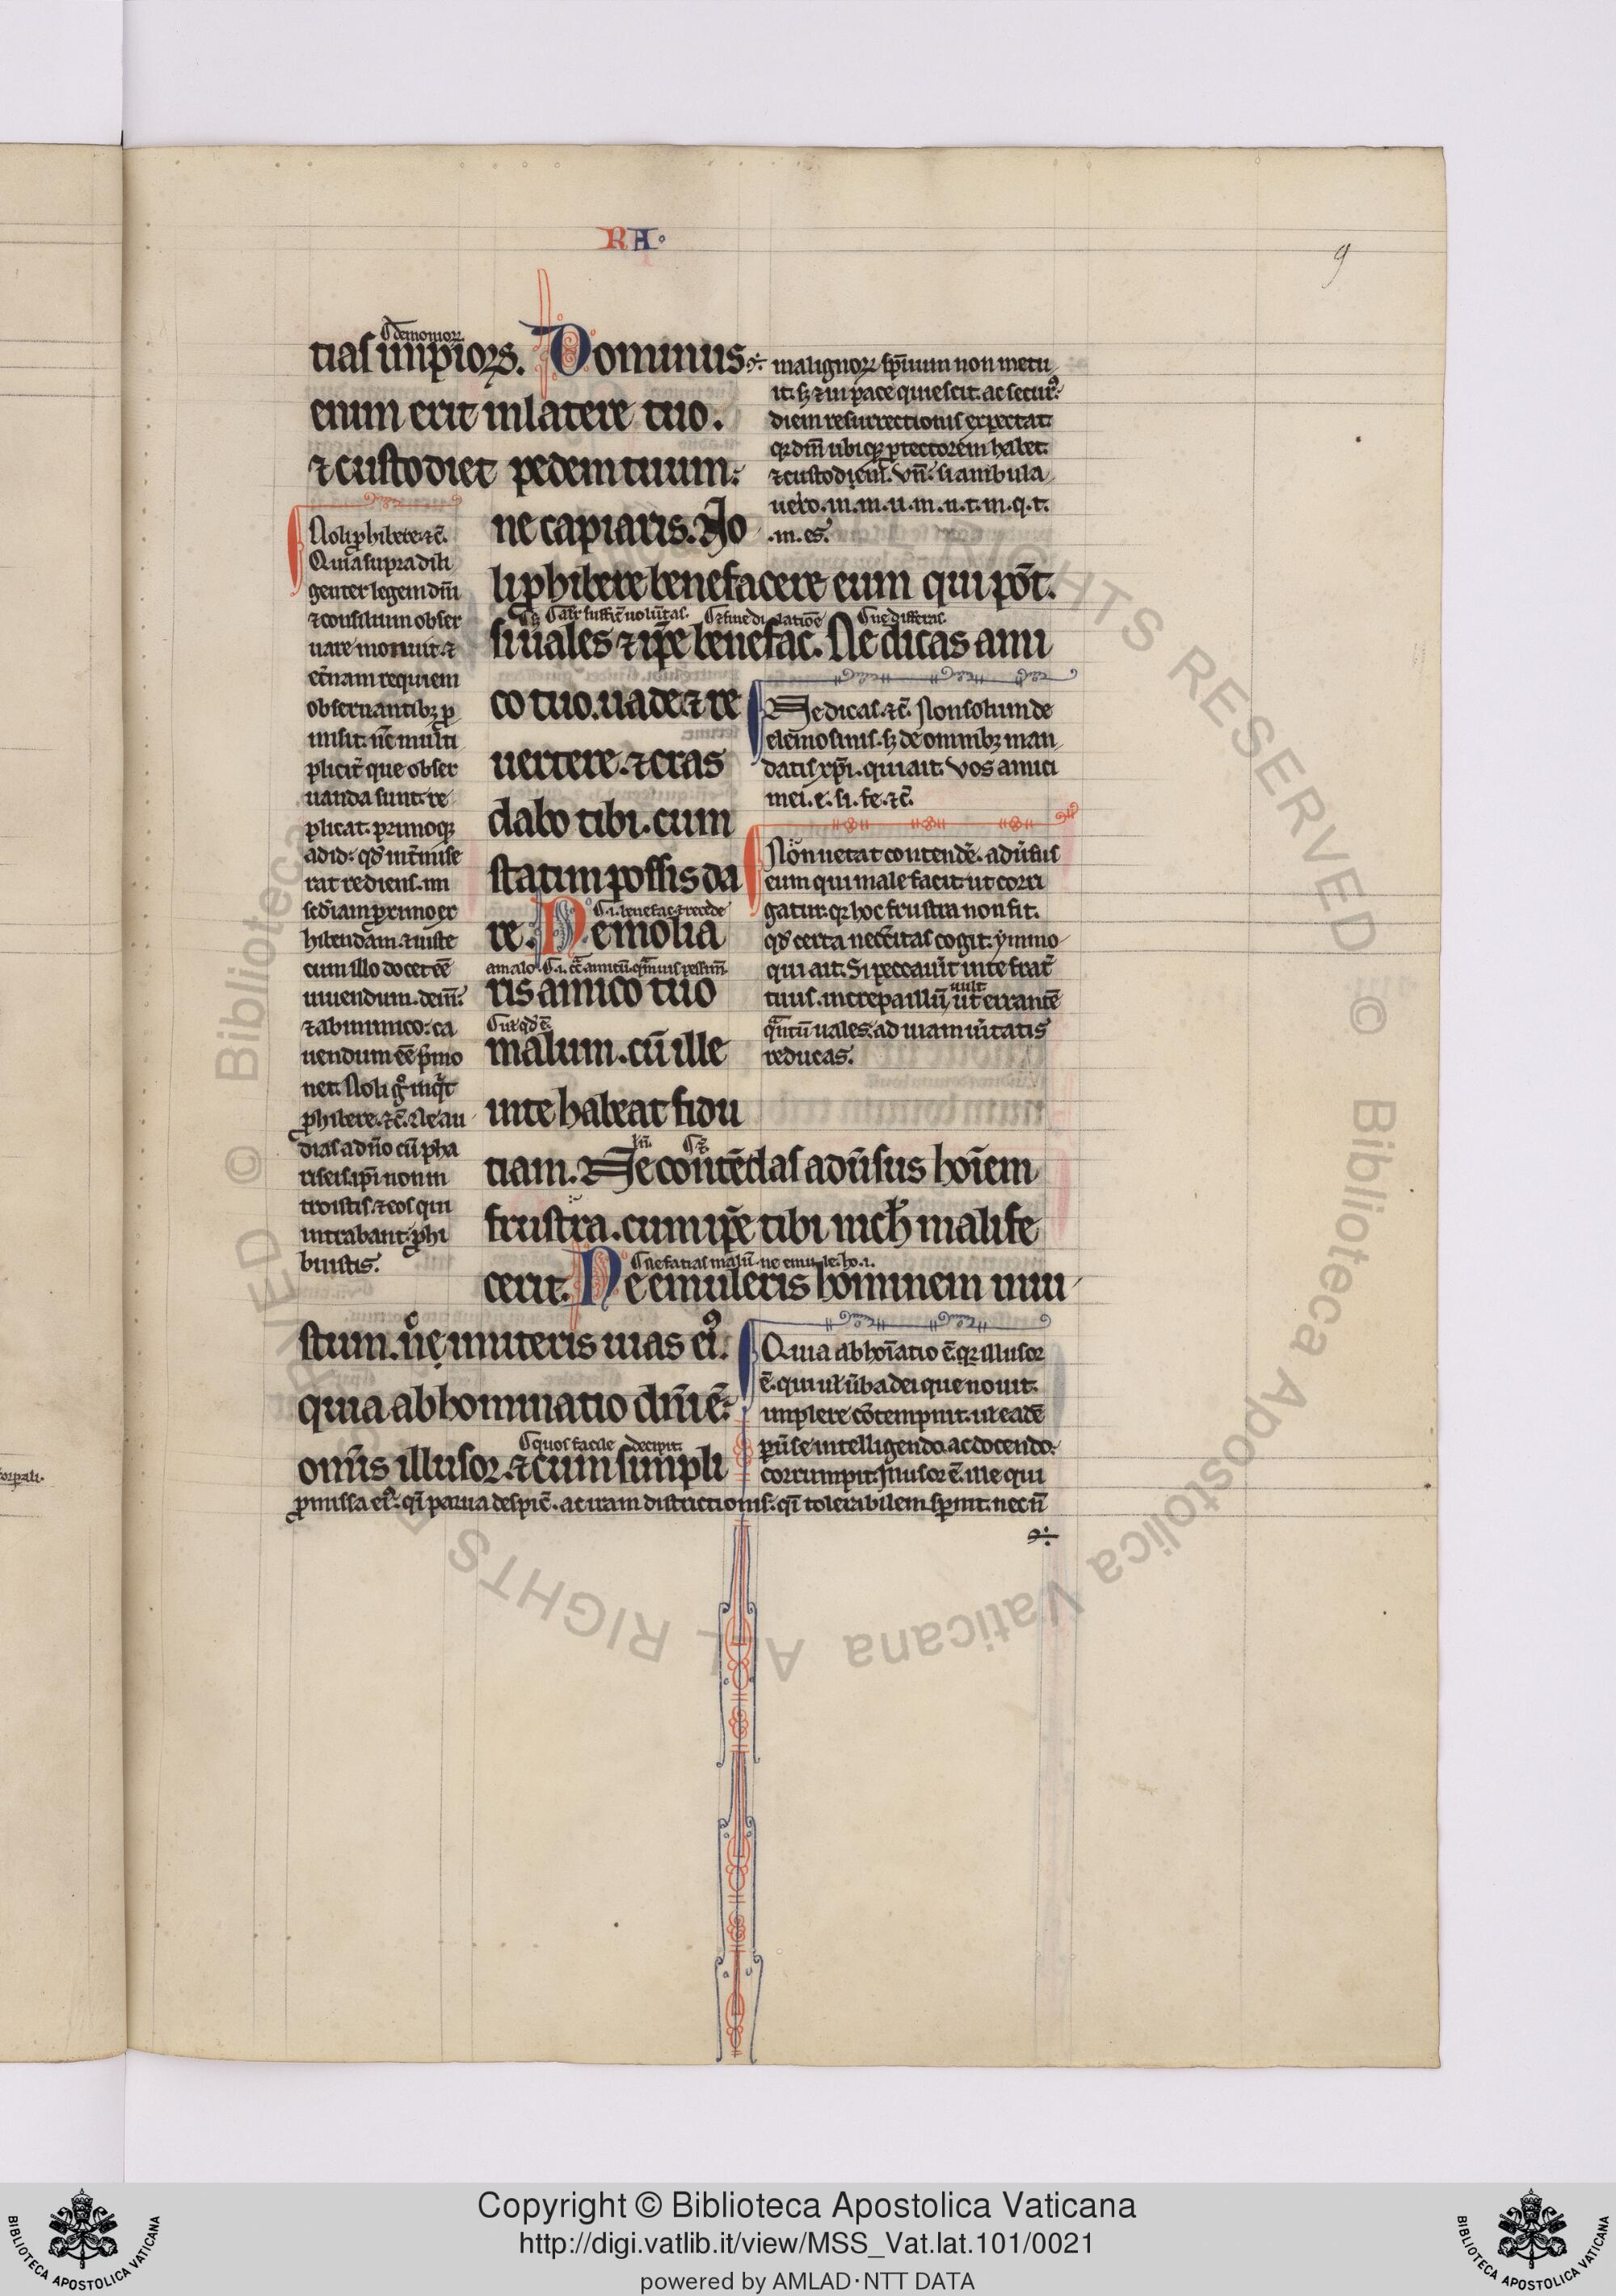 RA.
9
demonioꝝ
tias impioꝝ. Dominus
enim erit in latere tuo.
⁊ custodiet pedem tuum:
ne capiaris. No
li ꝓhibere benefacere eum qui pōt.
si uales ⁊ ip̄e benefac. Ne dicas ami
co tuo. uade ⁊ re
uertere. ⁊ cras
dabo tibi. cum
statim possis da
.i. benefac. ⁊ recede
re. Ne molia
ris amico tuo
malum. cū ille
in te habeat fidu
tiam. Ne contēdas adūsus hoīem
frustra. cum ip̄e tibi nich̄ mali fe
cerit. Ne emuleris hominem iniu
stum. nͤ imiteris uias eiꝰ.
quia abhominatio dn̄i ē:
quos facile decipit.
om̄is illusor. ⁊ cum simpli
malignoꝝ sp̄iuum non metu
it. sꝫ ⁊ in pace quiescit. ac securꝰ
diem resurrectionis expectat.
qꝛ dm̄ ubiqꝫ ꝓtectorem habet.
⁊ custodiem̄. Vn̄: si ambula
uero. in. m. u. m. n. t. m. q. t.
.m. es.
Noli ꝓhibere. ⁊c̄.
Quia supra dili
genter legem dn̄i
⁊ consilium obser
uare monuit. ⁊
et̄nam requiem
obseruantibꝫ ꝓ
misit. nē multi
plicit̄ que obser
uanda sunt. re
plicat. primoqꝫ
ad id: qd̄ int̄mise
rat rediens. mi
sedīam ꝓximo ex
hibendam. ⁊ iuste
cum illo docet eē
uiuendum. dein̄.
⁊ ab inimico: ca
uendum eē p̄mo
net. Noli gͦ inqͥt
ꝓhibere. ⁊c̄. Ne au
dias a dn̄o cū pha
riseis. ip̄i non in
troistis. ⁊ eos qui
intrabant. ꝓhi
buistis.
Ne dicas. ⁊c̄. Non solum de
elem̄osinis. sꝫ de omnibꝫ man
datis xp̄i. qui ait. Vos amici
mei. e. si. fe. ⁊c̄.
Non uetat contendē. adūsus
eum qui male facit. ut corri
gatur. qꝛ hoc frustra non fit.
qd̄ certa necc̄itas cogit. ymmo
qui ait. Si peccau̅it in te frat̄
uult
tuus. increpa illū, ut errantē
qͣntū uales. ad uiam ūitatis
reducas.
Quia abhoīatio ē. qꝛ illusor
ē. qui ul̄ ūba dei que nouit.
implere cōtempnit. ul̄ eadē
ꝑūse intelligendo. ac docendo.
corrumpit. Illusor ē. ille qui
ꝓmissa eiꝰ. qͥ parua despic̄. ac iram districtionis. qͥ tolerabilem sp̄nit. nec n̄
Copyright © Biblioteca Apostolica Vaticana
http://digi.vatlib.it/view/MSS_Vat.lat.101/0021
powered by AMLAD·NTT DATA
BIBLIOTECA APOSTOLICA VATICANA
BIBLIOTECA APOSTOLICA VATICANA